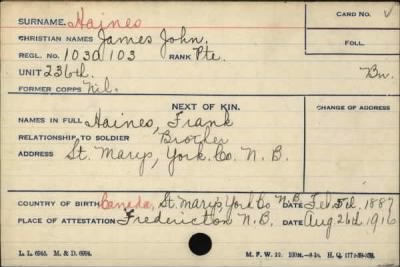 SURNAME. Haines CARD No. √
CHRISTIAN NAMES James John. FOLL.
REGL. No. 1030103 RANK Pte.
UNIT 236th. Bn.
FORMER CORPS Nil.
NEXT OF KIN. CHANGE OF ADDRESS
NAMES IN FULL Haines, Frank
RELATIONSHIP TO SOLDIER Brother
ADDRESS St. Marys, York. Co. N. B.
COUNTRY OF BIRTH Canada, St. Marys York Co N.B. DATE Feb. 1887
PLACE OF ATTESTATION Fredericton N.B. DATE Aug 26th. 1916
L. L. 6945. M. & D. 6994. M. F. W. 22. H. Q.